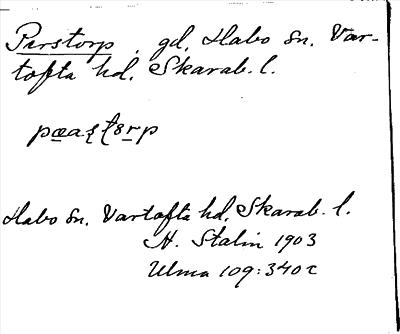 Perstorp, gd, Habo sn. Var-
tofta hd, Skarab. l.
Habo sn. Vartofta hd, Skarab. l.
H. Stalin 1903
Ulma 109:340 c